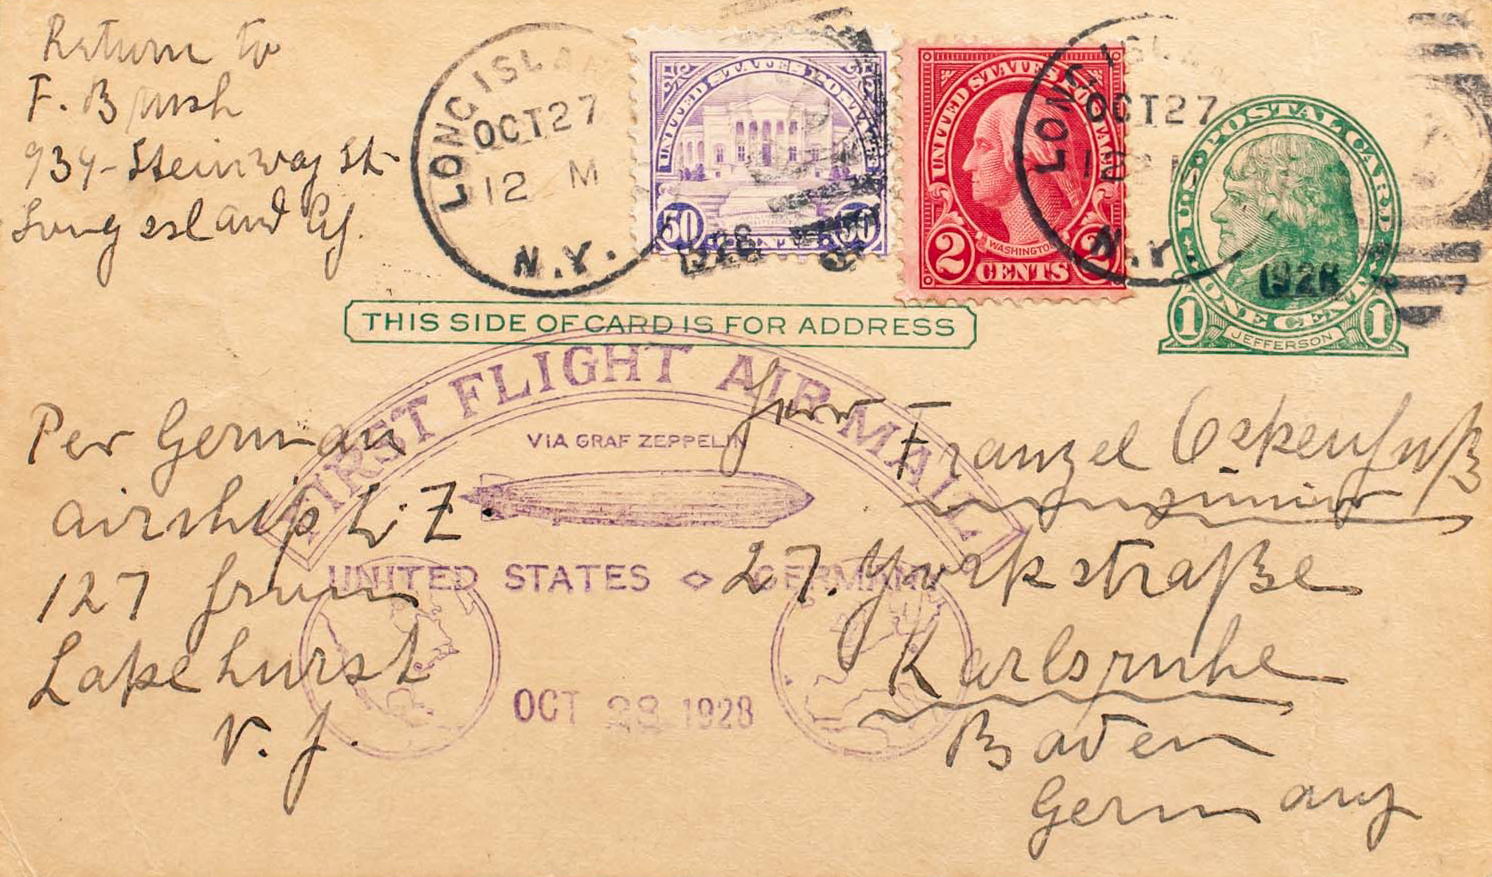 Return to
F. Brush
939-Steinway St.
Long Island Cy.
LONG ISLAND
OCT 27
12 M
N.Y.
1928
UNITED STATES POSTAGE
50 50
CENTS
UNITED STATES POSTAGE
WASHINGTON
2 CENTS 2
LONG ISLAND
OCT 27
12 M
N.Y.
1928
U.S. POSTAL CARD
1 ONE CENT 1
JEFFERSON
THIS SIDE OF CARD IS FOR ADDRESS
FIRST FLIGHT AIR MAIL
VIA GRAF ZEPPELIN
UNITED STATES GERMANY
OCT 28 1928
Per German
airship L.Z.
127 from
Lakehurst
N. J.
Herr Franzel
27. Yorkstraße
Karlsruhe
Baden
Germany